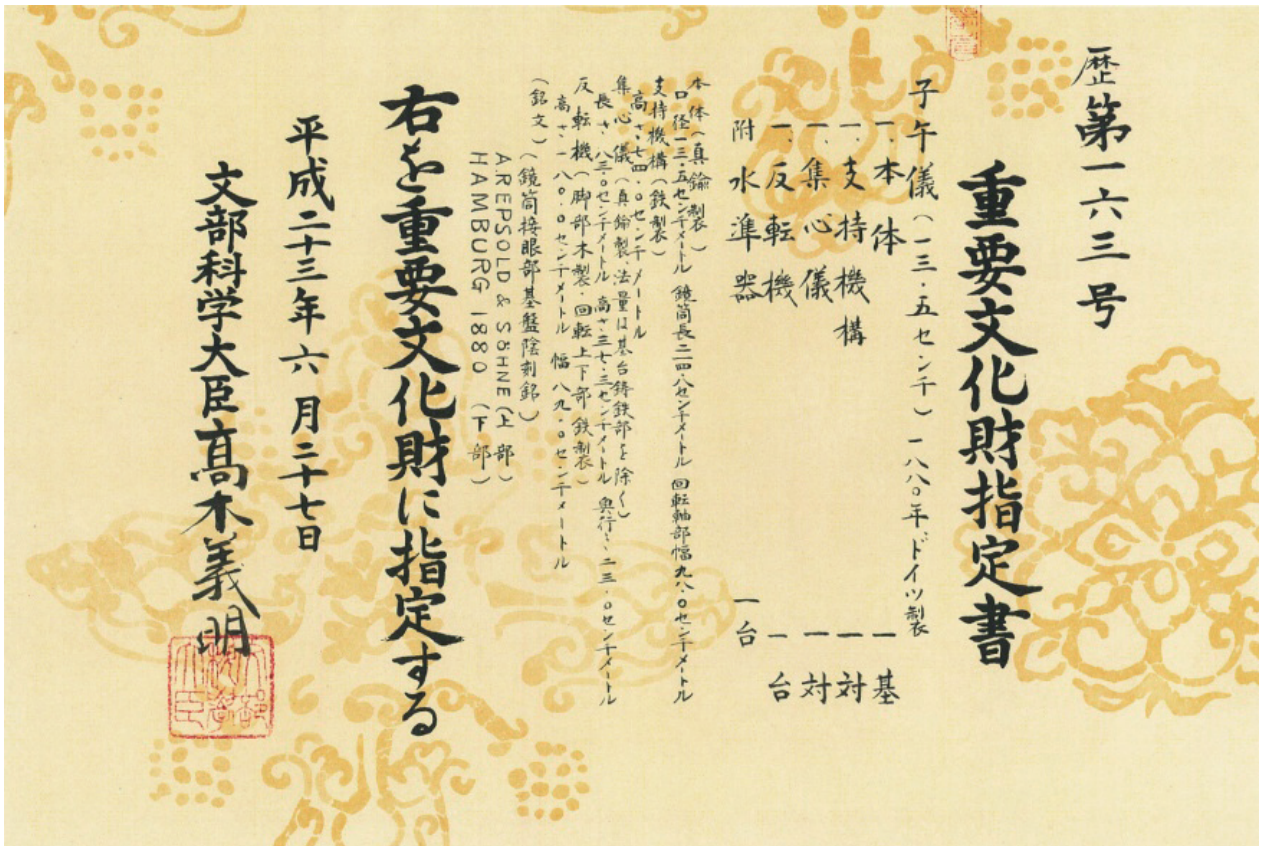 歴第一六三号
重要文化財指定書
子午儀(一三.五センチ)一八八〇年、ドイツ製
一、本体 一基
一、支持機構 一対
一、集心儀 一対
一、反転機 一台
附 水準器 一台
本体(真鍮製)
口径一三.五センチメートル 鏡筒長二四八センチメートル 回転軸部幅九八.〇センチメートル
支持機構(鉄製)
高さ、七四.〇センチメートル
集心儀(真鍮製、法量は基台鋳鉄部を除く)
長さ、八三.〇センチメートル 高さ三七.三センチメートル 奥行、二三.〇センチメートル
反転機(脚部木製・回転上下部鉄製)
高さ、一八〇.〇センチメートル 幅八九.〇センチメートル
(銘文)
(鏡筒接眼部基盤陰刻銘)
A.REPSOLD & SÖHNE(上部)
HAMBURG 1880(下部)
右を重要文化財に指定する
平成二十三年六月二十七日
文部科学大臣髙木義明